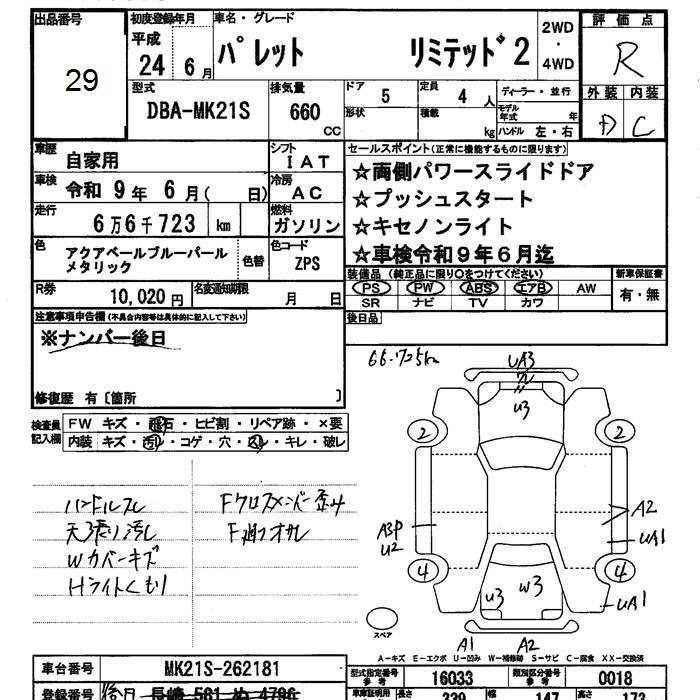 出品番号 初度登録年月 車名・グレード 2WD・4WD 評価点
29 平成 24 6月 パレット リミテッド2 R
型式 排気量 ドア 定員 ディーラー・並行 外装 内装
DBA-MK21S 660 CC 5 4人 D C
形状 積載 kg モデル年式 年
ハンドル 左・右
車歴 自家用 シフト IAT
車検 令和 9年 6月( 日) 冷房 AC
走行 6万6千723 km 燃料 ガソリン
色 アクアベールブルーパールメタリック 色替 色コード ZPS
R券 10,020円 名変通知期限 月 日
セールスポイント(正常に機能するものに限ります)
☆両側パワースライドドア
☆プッシュスタート
☆キセノンライト
☆車検令和9年6月迄
装備品(純正品に限り○をつけてください) 新車保証書
PS PW ABS エアB AW 有・無
SR ナビ TV カワ
後日品
注意事項申告欄(不具合内容等は具体的に記入して下さい)
※ナンバー後日
修復歴 有〔箇所 〕
検査員記入欄 FW キズ・飛石・ヒビ割・リペア跡・×要
内装 キズ・汚レ・コゲ・穴・スレ・キレ・破レ
ハンドルスレ
天張り汚し
Wカバーキズ
Hライトくもり
Fクロスメンバー歪み
F廻りオサレ
66.725km
UA3
U3
2 2
A3P
U2
A2
UA1
4 4
U3 W3
UA1
A1 A2
スペア
A－キズ E－エクボ U－凹み W－補修跡 S－サビ C－腐食 XX－交換済
車台番号 MK21S-262181
型式指定番号 参考 16033 類別区分番号 参考 0018
登録番号 後日 長崎 581 ぬ 4796
車庫証明用 長さ 339 幅 147 高さ 173